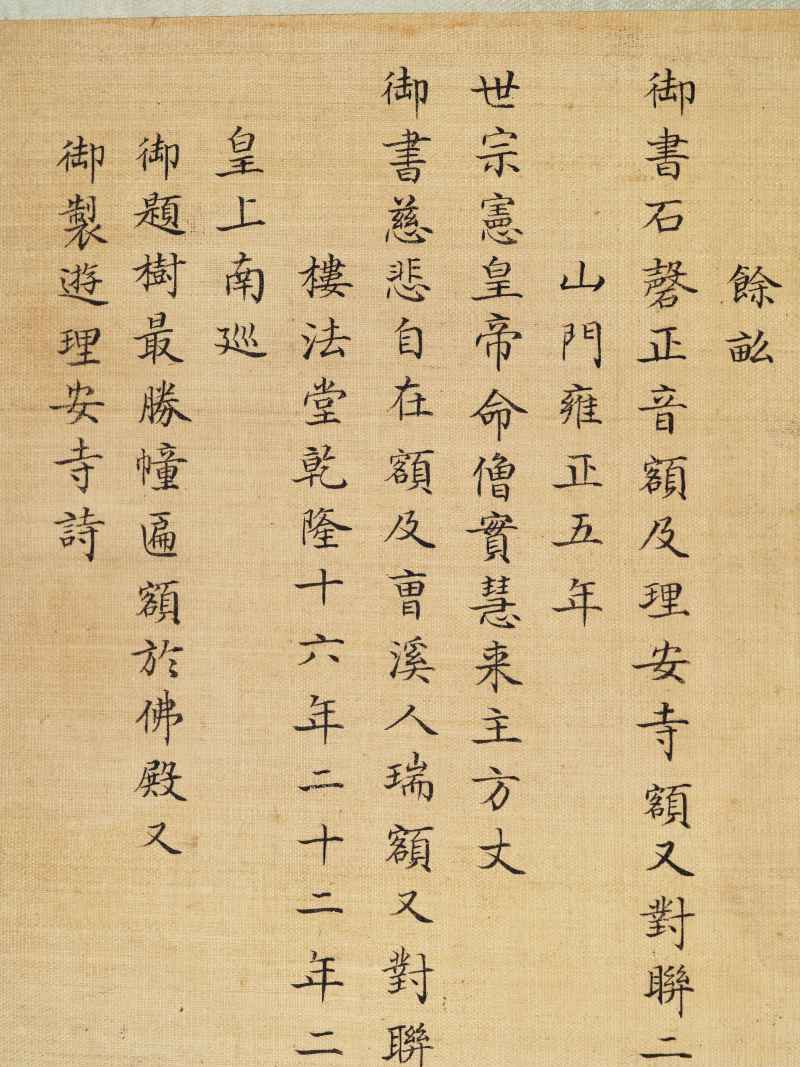 餘畝
御書石磬正音額及理安寺額又對聯二
山門雍正五年
世宗憲皇帝命僧實慧来主方丈
御書慈悲自在額及曺溪人瑞額又對聯
樓法堂乾隆十六年二十二年二
皇上南廵
御題樹最勝幢匾額於佛殿又
御製遊理安寺詩